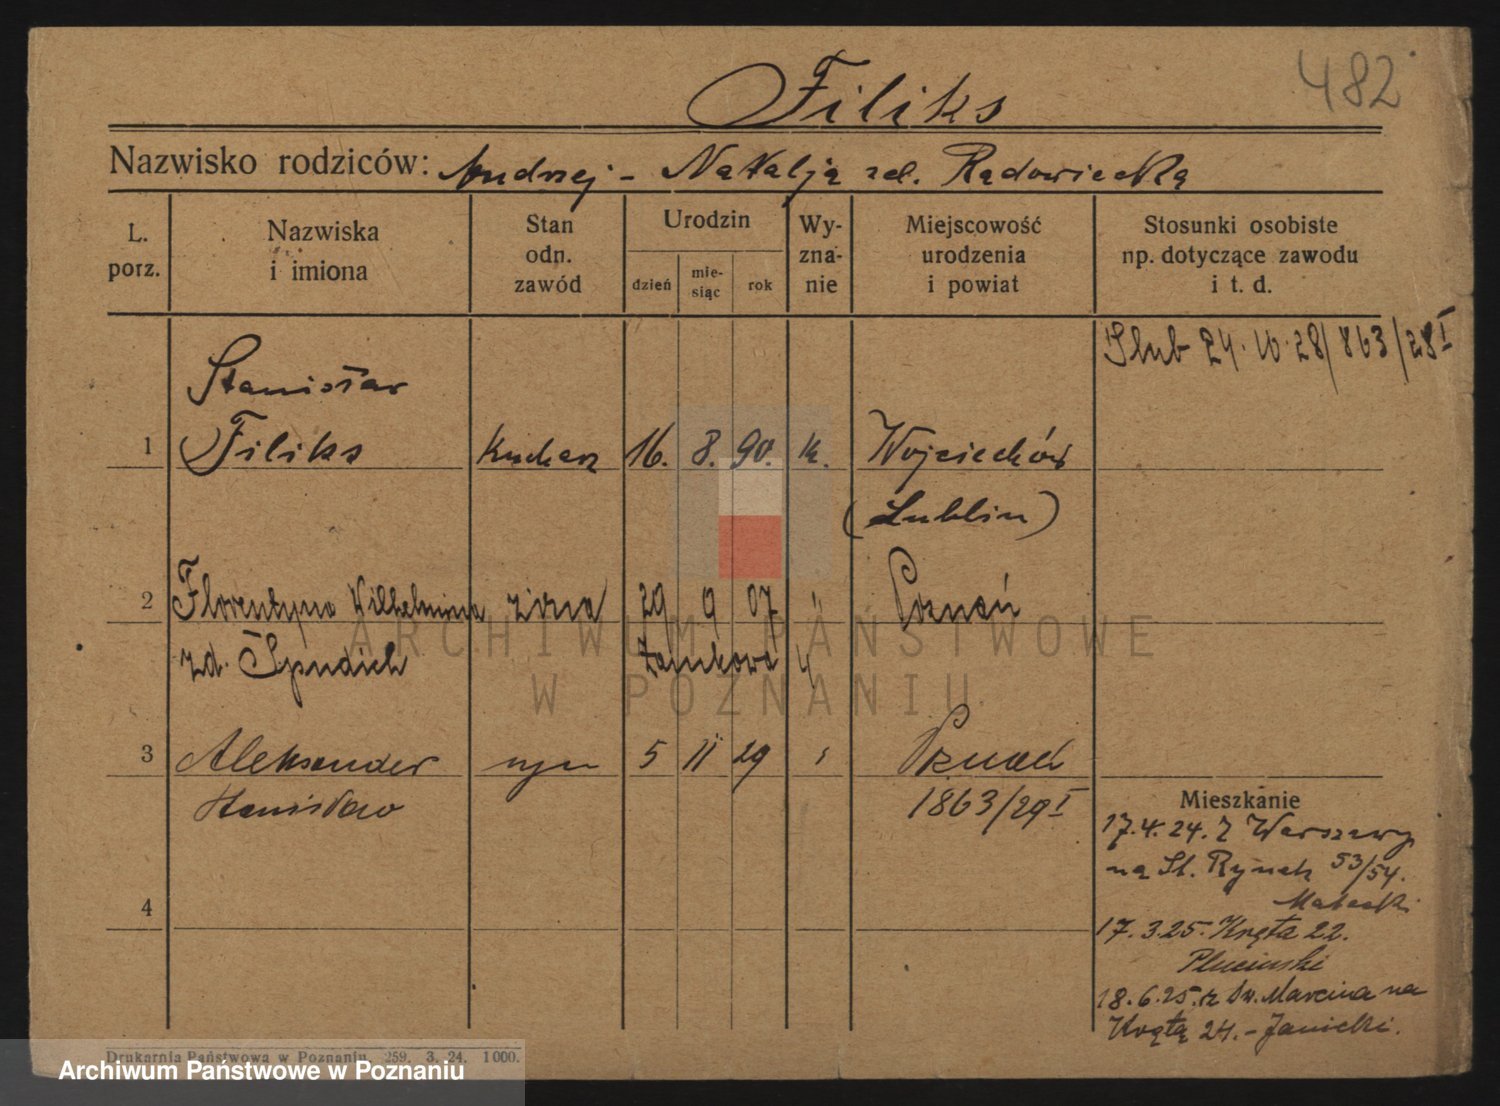 482
Filiks
Nazwisko rodziców: Andrzej - Natalja
L. porz.
Nazwiska i imiona
Stan odn. zawód
Urodzin
dzień
mie-siąc
rok
Wy-zna-nie
Miejscowość urodzenia i powiat
Stosunki osobiste np. dotyczące zawodu i t. d.
Ślub 24.10.28/863/28 I
Stanisław
1 Filiks kucharz 16. 8. 90. k. Wojciechów
(Lublin)
2 Florentyna Wilhelmina żona 29 9 07 Poznań
zd. Spudich Zamkowa 4
3 Aleksander syn 5 11 29 Poznań
Stanisław 1863/29 I
4
Mieszkanie
17.4.24. Z Warszawy
na St. Rynek 53/54.
17.3.25. Kręta 22.
Pluciński
18.6.25. z Św. Marcina na
Krętą 24. - Janicki.
ARCHIWUM PAŃSTWOWE
W POZNANIU
Drukarnia Państwowa w Poznaniu. 259. 3. 24. 1000.
Archiwum Państwowe w Poznaniu